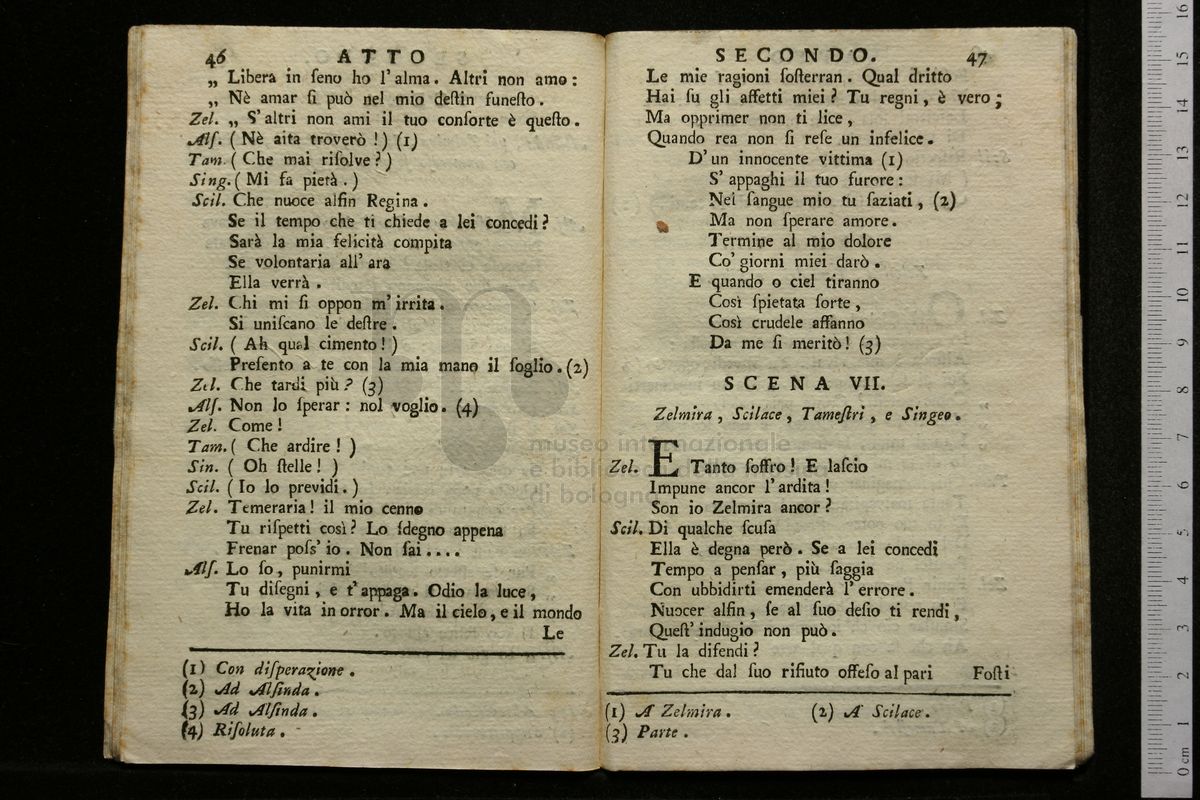 46 ATTO
„ Libera in ſeno ho l'alma. Altri non amo:
„ Nè amar ſi può nel mio deſtin funeſto.
Zel. „ S'altri non ami il tuo conſorte è queſto.
Alſ. ( Nè aita troverò! ) (1)
Tam. ( Che mai riſolve? )
Sing. ( Mi fa pietà. )
Scil. Che nuoce alfin Regina.
Se il tempo che ti chiede a lei concedi?
Sarà la mia felicità compita
Se volontaria all'ara
Ella verrà.
Zel. Chi mi ſi oppon m'irrita.
Si uniſcano le deſtre.
Scil. ( Ah qual cimento! )
Preſento a te con la mia mano il ſoglio. (2)
Zel. Che tardi più? (3)
Alſ. Non lo ſperar: nol voglio. (4)
Zel. Come!
Tam. ( Che ardire! )
Sin. ( Oh ſtelle! )
Scil. ( Io lo previdi. )
Zel. Temeraria! il mio cenno
Tu riſpetti così? Lo ſdegno appena
Frenar poſs'io. Non ſai....
Alſ. Lo ſo, punirmi
Tu diſegni, e t'appaga. Odio la luce,
Ho la vita in orror. Ma il cielo, e il mondo
Le
(1) Con diſperazione.
(2) Ad Alſinda.
(3) Ad Alſinda.
(4) Riſoluta.
SECONDO. 47
Le mie ragioni ſoſterran. Qual dritto
Hai ſu gli affetti miei? Tu regni, è vero;
Ma opprimer non ti lice,
Quando rea non ſi reſe un infelice.
D'un innocente vittima (1)
S'appaghi il tuo furore:
Nel ſangue mio tu ſaziati, (2)
Ma non ſperare amore.
Termine al mio dolore
Co' giorni miei darò.
E quando o ciel tiranno
Così ſpietata ſorte,
Così crudele affanno
Da me ſi meritò! (3)
SCENA VII.
Zelmira, Scilace, Tameſtri, e Singeo.
Zel. E Tanto ſoffro! E laſcio
Impune ancor l'ardita!
Son io Zelmira ancor?
Scil. Di qualche ſcuſa
Ella è degna però. Se a lei concedi
Tempo a penſar, più ſaggia
Con ubbidirti emenderà l'errore.
Nuocer alfin, ſe al ſuo deſio ti rendi,
Queſt'indugio non può.
Zel. Tu la difendi?
Tu che dal ſuo rifiuto offeſo al pari Foſti
(1) A' Zelmira. (2) A' Scilace.
(3) Parte.
museo internazionale
e biblio
di bologna
0 cm 1 2 3 4 5 6 7 8 9 10 11 12 13 14 15 16